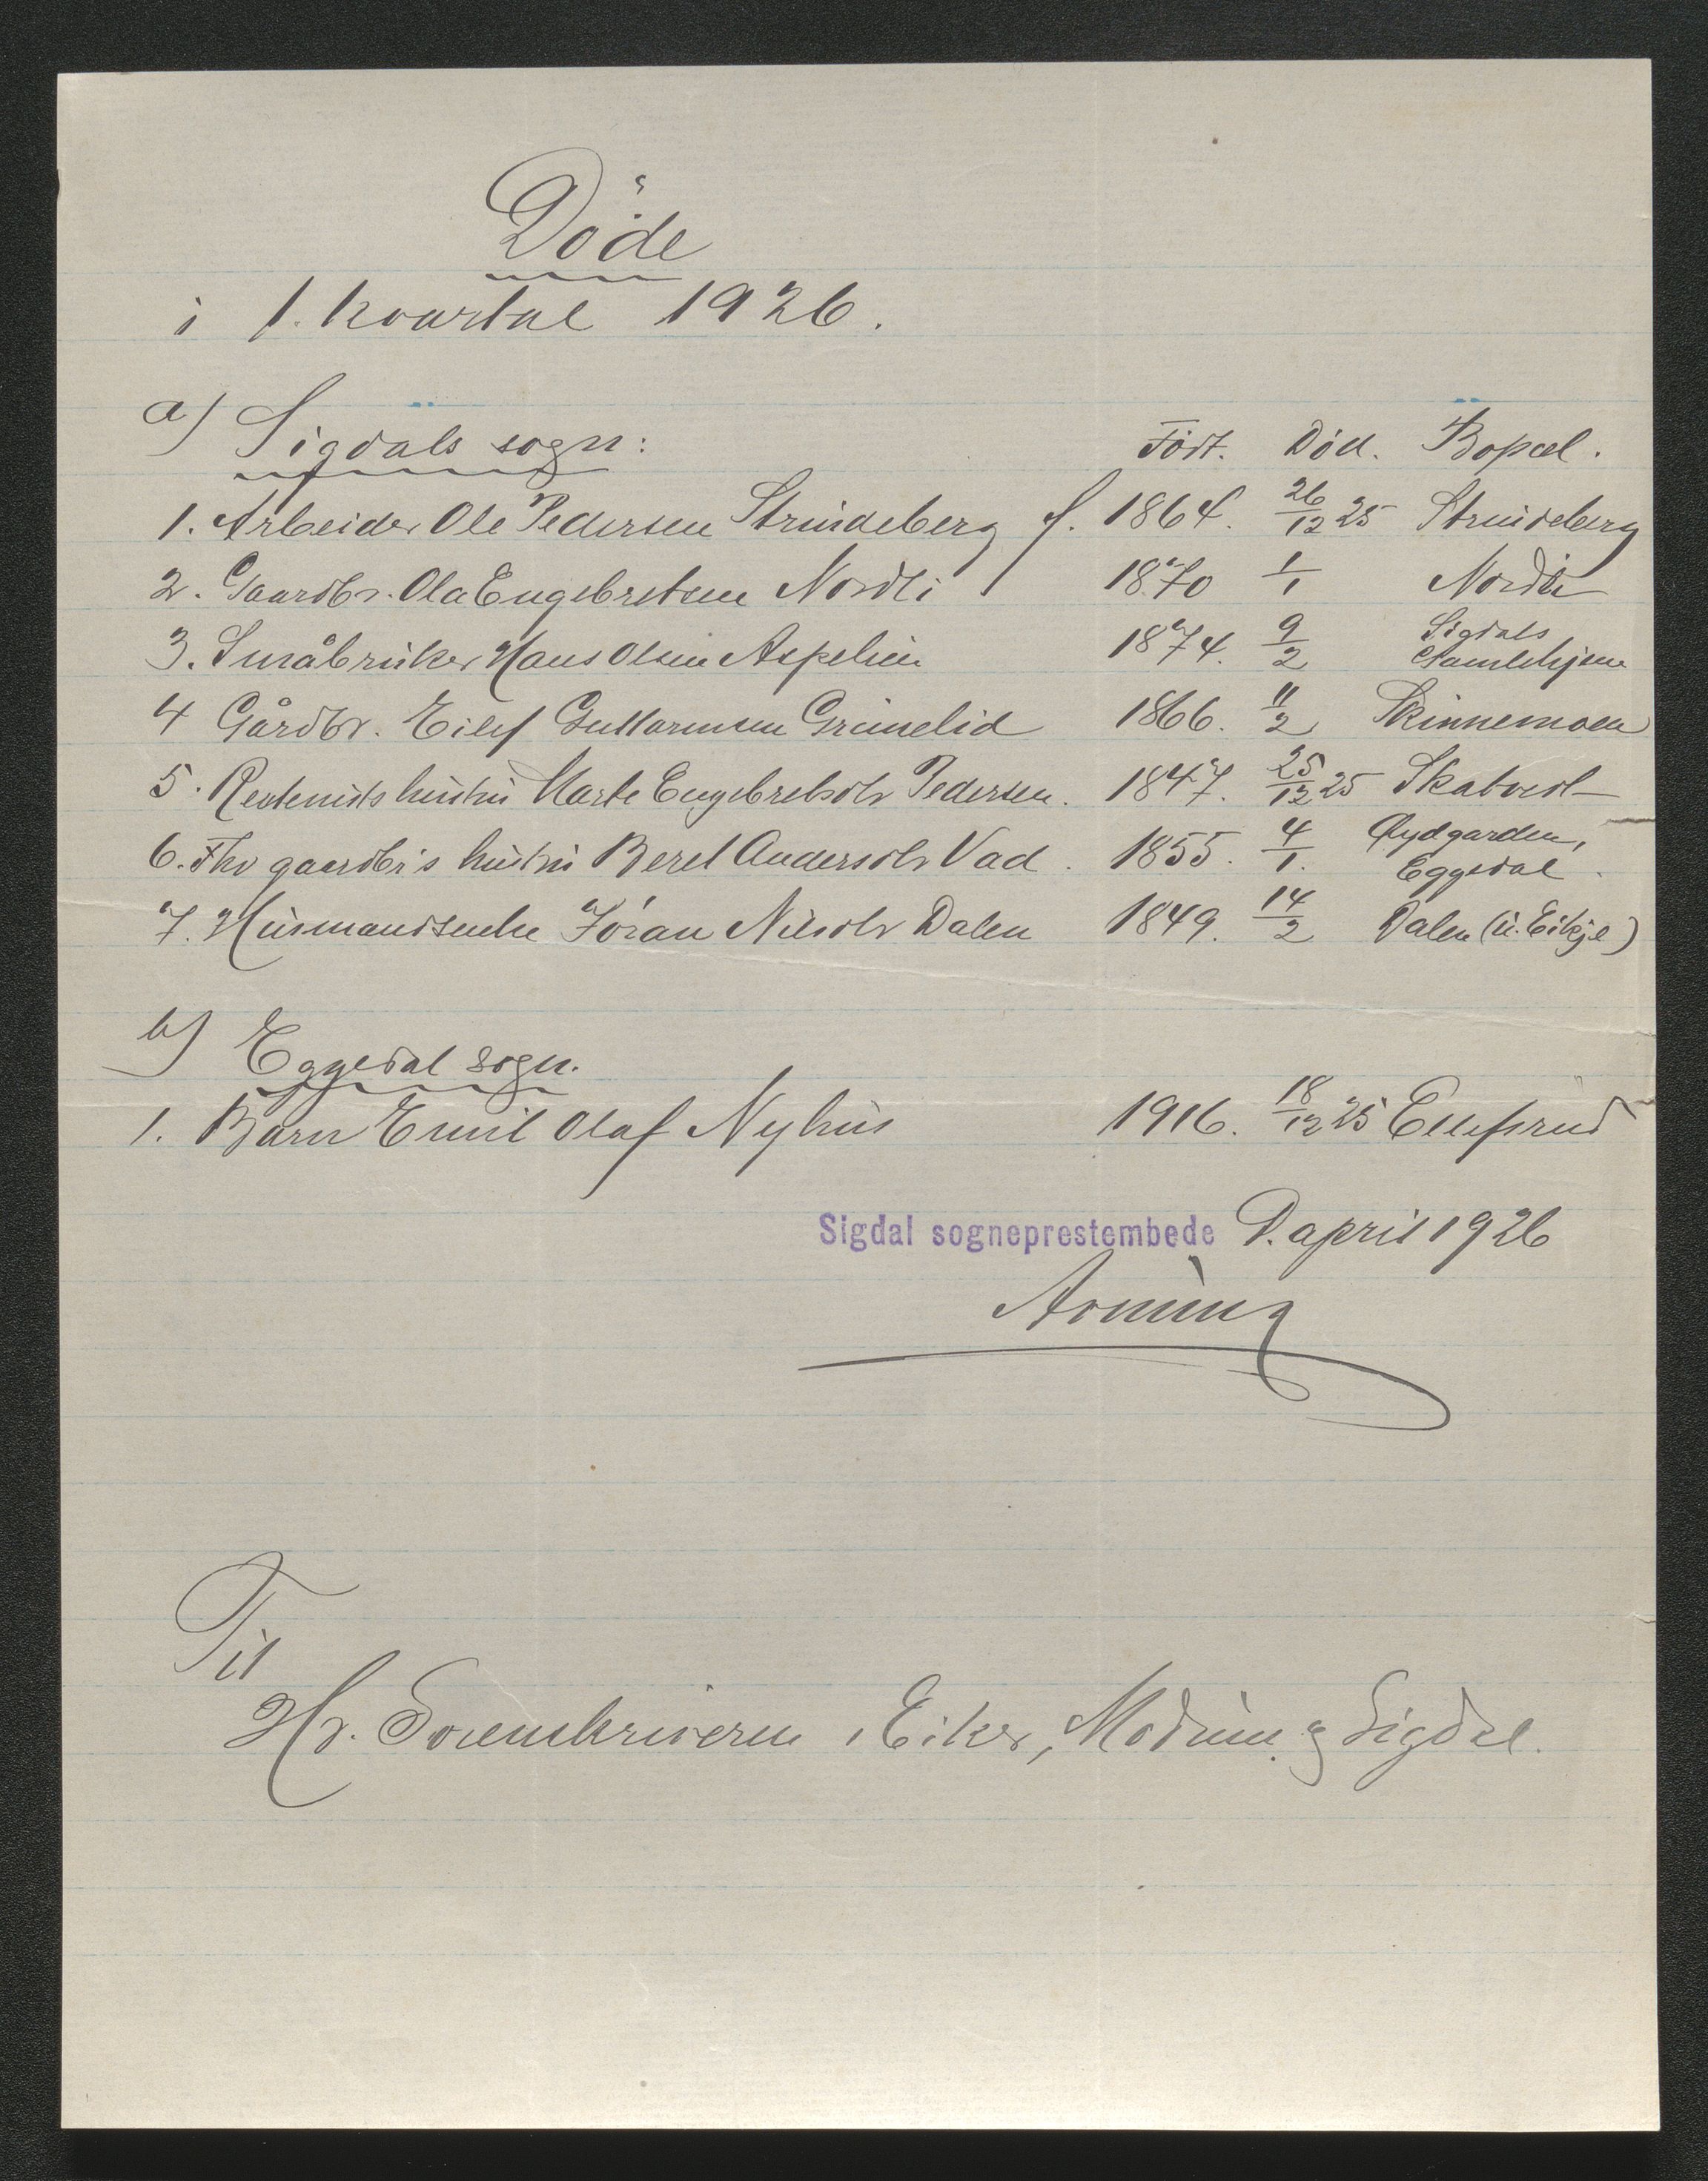 Döde
i 1. kvartal 1926.
a) Sigdals sogn: Født. Död. Bopæl.
1. Arbeider Ole Pedersen Strindeberg f. 1864. 26/12 25 Strindeberg
2. Gaardbr. Ola Engebretsen Nordli 1870 1/1 Nordli
3. Småbruker Hans Olsen Aspelien 1874. 9/2 Sigdals
Gamlehjem
4 Gårdbr. Eilef Guttormsen Grimelid 1866. 11/2 Skinnemoen
5. hustru Marte Engebretsdtr Pedersen. 1847. 25/12 25 Skatvedt
6. Fhv gaardbr's hustru Beret Andersdtr Vad. 1855. 4/1. Øydgarden,
Eggedal.
7. Husmandsenke Jöran Nilsdtr Dalen 1849. 14/2 Dalen (u. Eikje)
b) Eggedal sogn.
1. Barn Emil Olaf Nyhus 1916. 18/12 25 Ellefsrud
Sigdal sogneprestembede D. april 1926
Til
Hr. Sorenskriveren i Eiker, Modum og Sigdal.